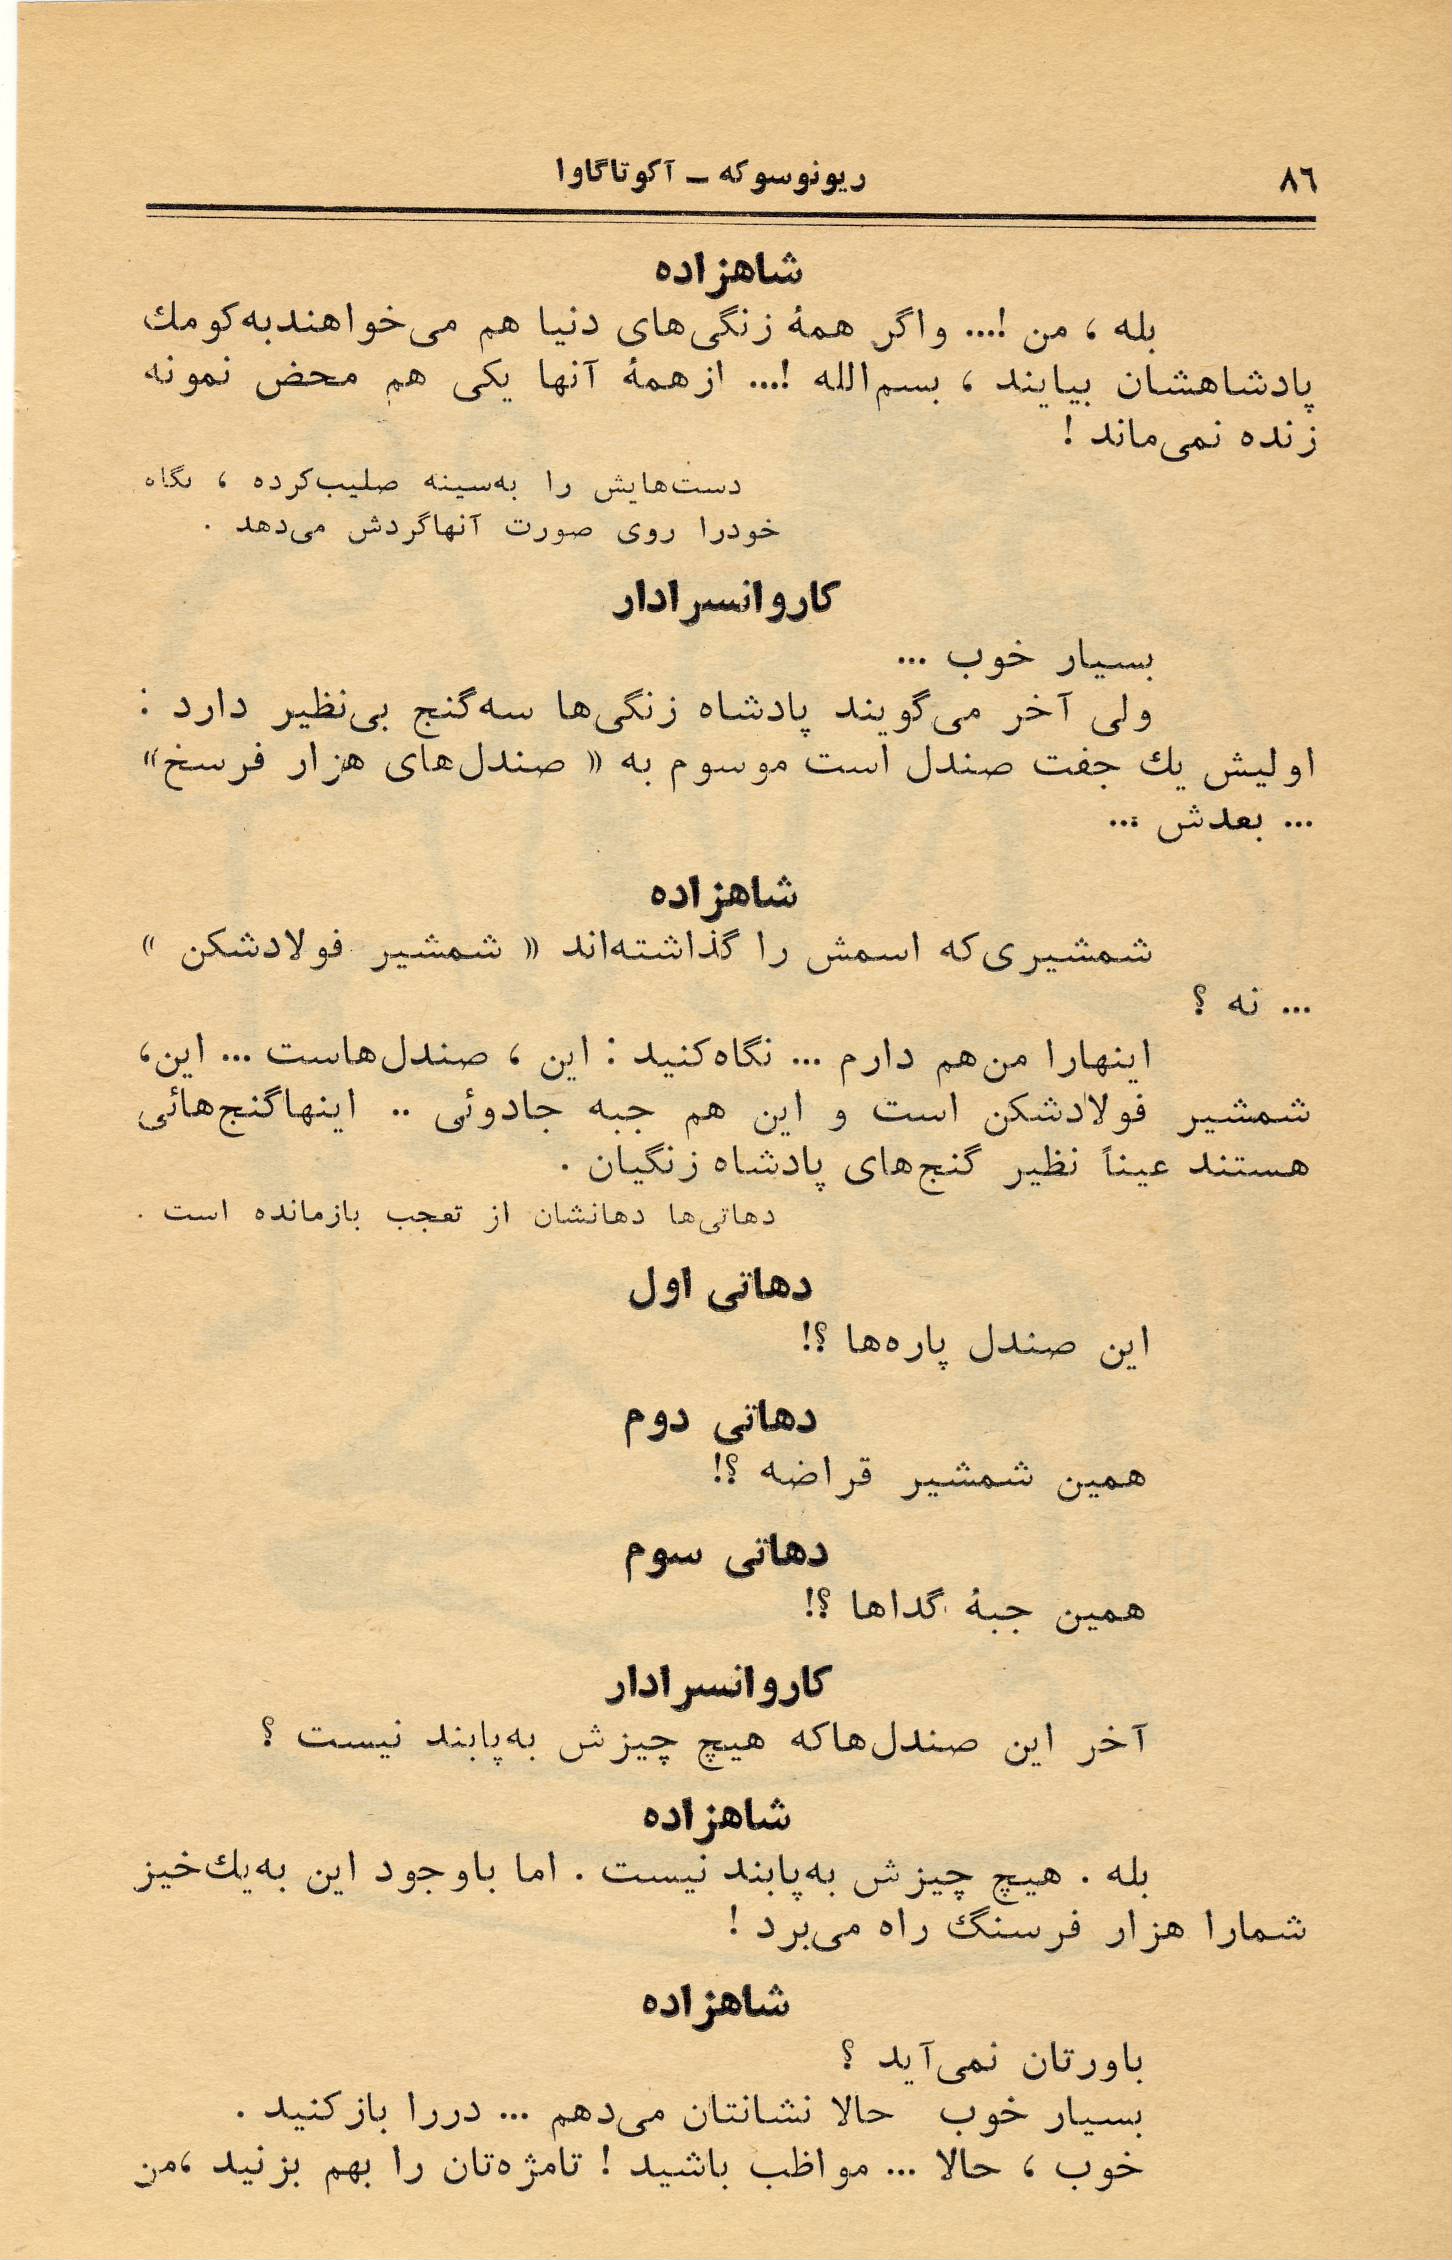 ۸۶
ریونوسوکه ـ آکوتاگاوا
شاهزاده
بله ، من !... واگر همهٔ زنگی‌های دنیا هم می‌خواهندبه‌کومك
پادشاهشان بیایند ، بسم‌الله !... ازهمهٔ آنها یکی هم محض نمونه
زنده نمی‌ماند !
دست‌هایش را به‌سینه صلیب‌کرده ، نگاه
خودرا روی صورت آنهاگردش می‌دهد .
کاروانسرادار
بسیار خوب ...
ولی آخر می‌گویند پادشاه زنگی‌ها سه‌گنج بی‌نظیر دارد :
اولیش یك جفت صندل است موسوم به « صندل‌های هزار فرسخ»
... بعدش ...
شاهزاده
شمشیری‌که اسمش را گذاشته‌اند « شمشیر فولادشکن »
... نه ؟
اینهارا من‌هم دارم ... نگاه‌کنید : این ، صندل‌هاست ... این،
شمشیر فولادشکن است و این هم جبه جادوئی .. اینهاگنج‌هائی
هستند عیناً نظیر گنج‌های پادشاه زنگیان .
دهاتی‌ها دهانشان از تعجب بازمانده است .
دهاتی اول
این صندل پاره‌ها ؟!
دهاتی دوم
همین شمشیر قراضه ؟!
دهاتی سوم
همین جبهٔ گداها ؟!
کاروانسرادار
آخر این صندل‌هاکه هیچ چیزش به‌پابند نیست ؟
شاهزاده
بله . هیچ چیزش به‌پابند نیست . اما باوجود این به‌یك‌خیز
شمارا هزار فرسنگ راه می‌برد !
شاهزاده
باورتان نمی‌آید ؟
بسیار خوب حالا نشانتان می‌دهم ... دررا بازکنید .
خوب ، حالا ... مواظب باشید ! تامژه‌تان را بهم بزنید ،من